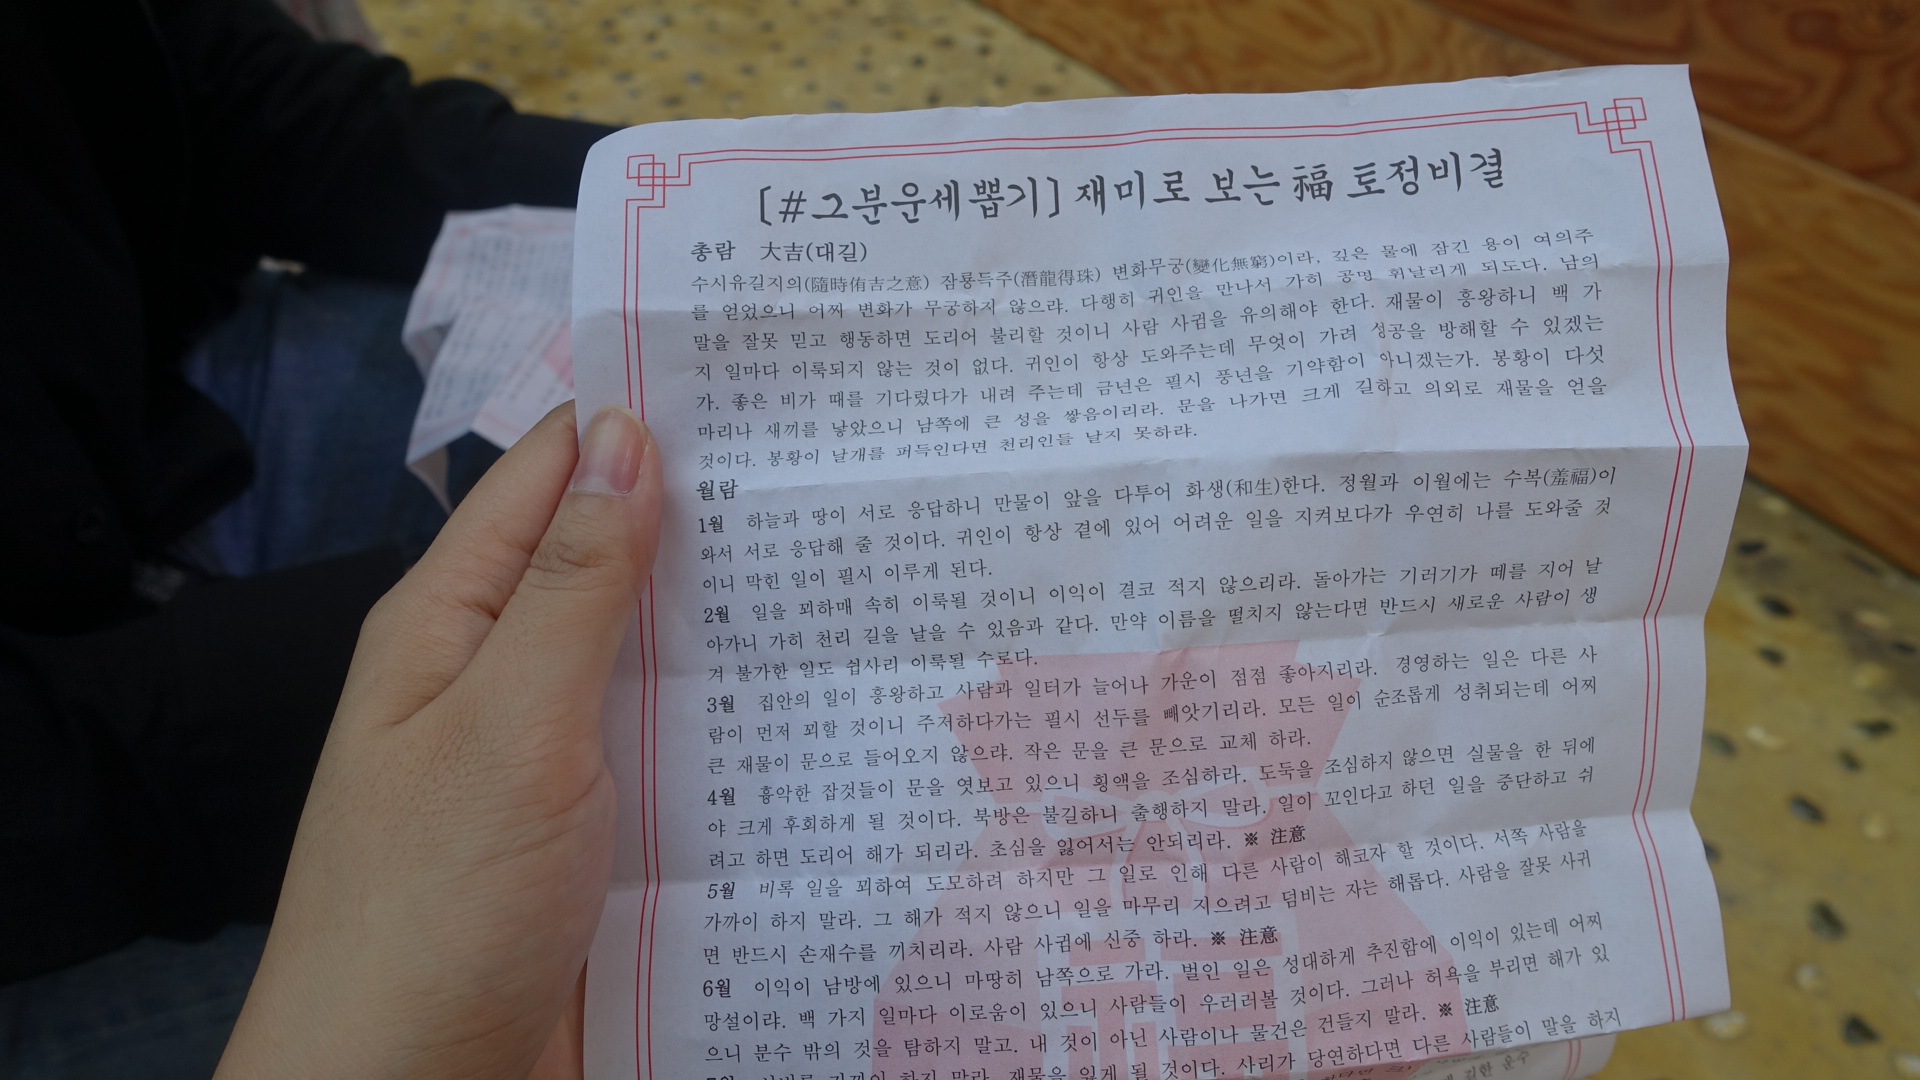 [#그분운세뽑기] 재미로 보는 福 토정비결
총람 大吉(대길)
수시유길지의(隨時侑吉之意) 잠룡득주(潛龍得珠) 변화무궁(變化無窮)이라, 깊은 물에 잠긴 용이 여의주
를 얻었으니 어찌 변화가 무궁하지 않으랴. 다행히 귀인을 만나서 가히 공명 휘날리게 되도다. 남의
말을 잘못 믿고 행동하면 도리어 불리할 것이니 사람 사귐을 유의해야 한다. 재물이 흥왕하니 백 가
지 일마다 이룩되지 않는 것이 없다. 귀인이 항상 도와주는데 무엇이 가려 성공을 방해할 수 있겠는
가. 좋은 비가 때를 기다렸다가 내려 주는데 금년은 필시 풍년을 기약함이 아니겠는가. 봉황이 다섯
마리나 새끼를 낳았으니 남쪽에 큰 성을 쌓음이리라. 문을 나가면 크게 길하고 의외로 재물을 얻을
것이다. 봉황이 날개를 퍼득인다면 천리인들 날지 못하랴.
월람
1월 하늘과 땅이 서로 응답하니 만물이 앞을 다투어 화생(和生)한다. 정월과 이월에는 수복(羞福)이
와서 서로 응답해 줄 것이다. 귀인이 항상 곁에 있어 어려운 일을 지켜보다가 우연히 나를 도와줄 것
이니 막힌 일이 필시 이루게 된다.
2월 일을 꾀하매 속히 이룩될 것이니 이익이 결코 적지 않으리라. 돌아가는 기러기가 떼를 지어 날
아가니 가히 천리 길을 날을 수 있음과 같다. 만약 이름을 떨치지 않는다면 반드시 새로운 사람이 생
겨 불가한 일도 쉽사리 이룩될 수로다.
3월 집안의 일이 흥왕하고 사람과 일터가 늘어나 가운이 점점 좋아지리라. 경영하는 일은 다른 사
람이 먼저 꾀할 것이니 주저하다가는 필시 선두를 빼앗기리라. 모든 일이 순조롭게 성취되는데 어찌
큰 재물이 문으로 들어오지 않으랴. 작은 문을 큰 문으로 교체 하라.
4월 흉악한 잡것들이 문을 엿보고 있으니 횡액을 조심하라. 도둑을 조심하지 않으면 실물을 한 뒤에
야 크게 후회하게 될 것이다. 북방은 불길하니 출행하지 말라. 일이 꼬인다고 하던 일을 중단하고 쉬
려고 하면 도리어 해가 되리라. 초심을 잃어서는 안되리라. ※ 注意
5월 비록 일을 꾀하여 도모하려 하지만 그 일로 인해 다른 사람이 해코자 할 것이다. 서쪽 사람을
가까이 하지 말라. 그 해가 적지 않으니 일을 마무리 지으려고 덤비는 자는 해롭다. 사람을 잘못 사귀
면 반드시 손재수를 끼치리라. 사람 사귐에 신중 하라. ※ 注意
6월 이익이 남방에 있으니 마땅히 남쪽으로 가라. 벌인 일은 성대하게 추진함에 이익이 있는데 어찌
망설이랴. 백 가지 일마다 이로움이 있으니 사람들이 우러러볼 것이다. 그러나 허욕을 부리면 해가 있
으니 분수 밖의 것을 탐하지 말고. 내 것이 아닌 사람이나 물건은 건들지 말라. ※ 注意
가까이 하지 말라. 재물을 잃게 될 것이다. 사리가 당연하다면 다른 사람들이 말을 하지